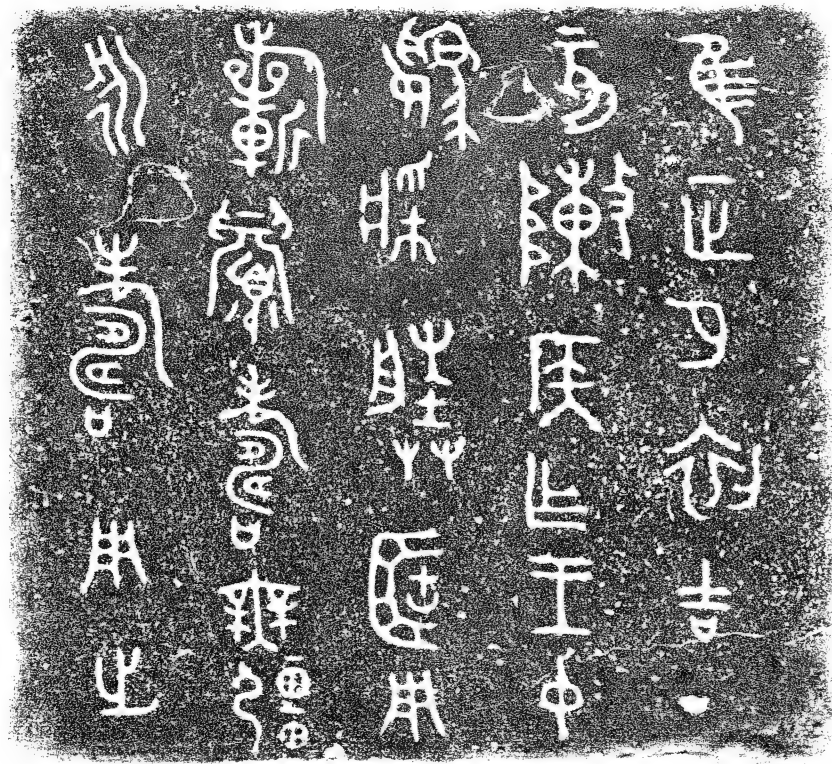 隹正月初吉丁
亥敶侯乍王中
媯媵匜用
祈眉壽無彊
永壽用之